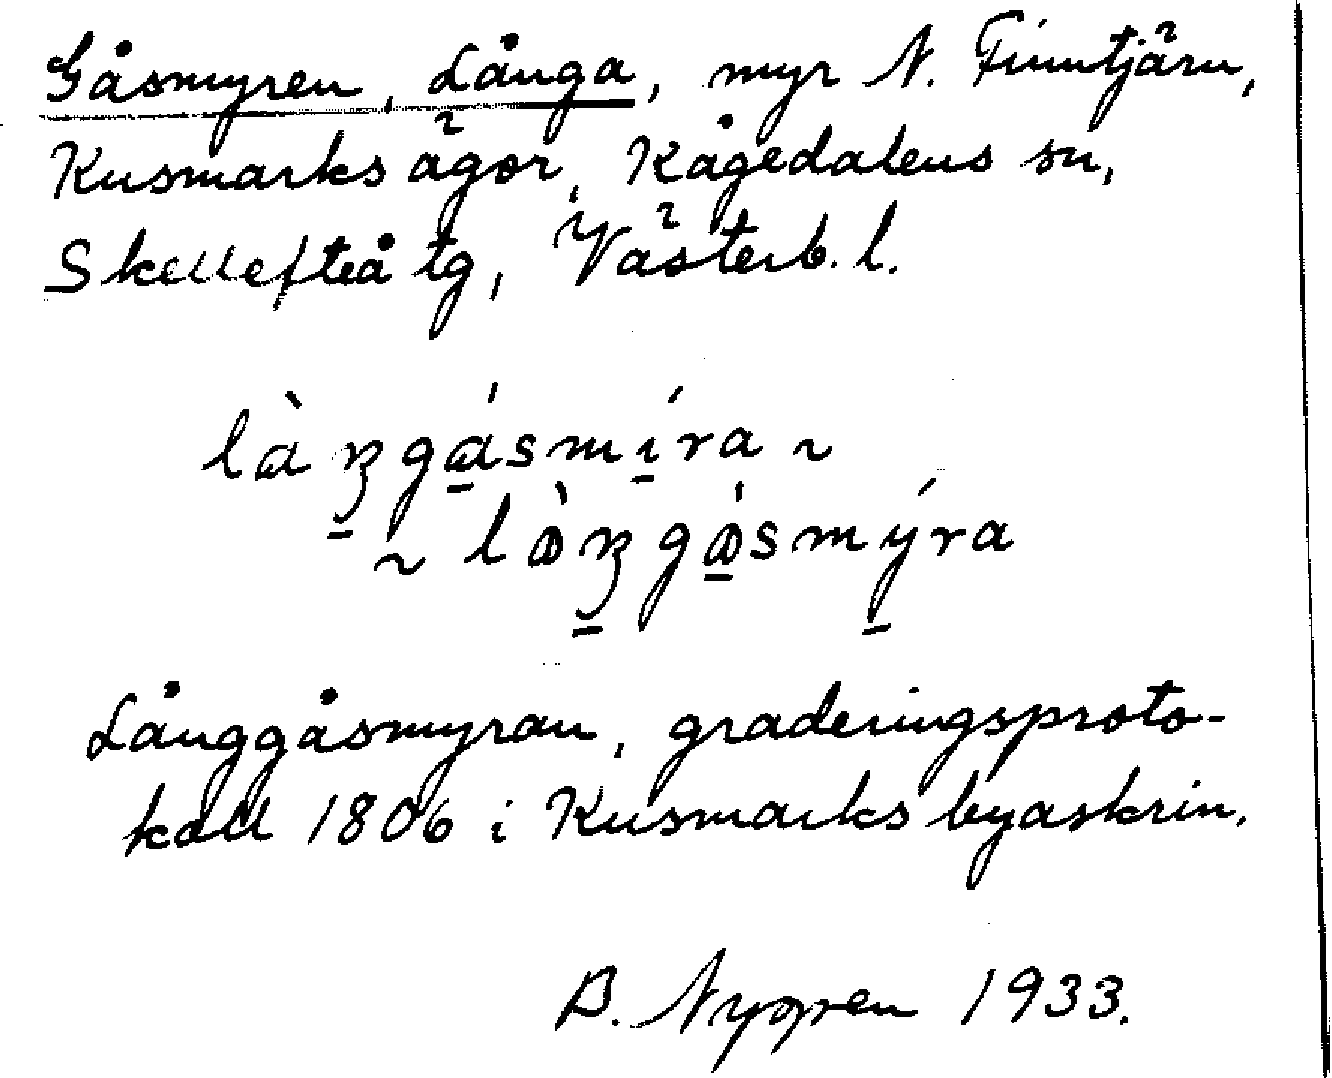 Gåsmyren, Långa, myr N. Finntjärn,
Kusmarks ägor, Kågedalens sn,
Skellefteå tg, Västerb. l.
Långgåsmyran, graderingsproto-
koll 1806 i Kusmarks byaskrin.
B. Nygren 1933.